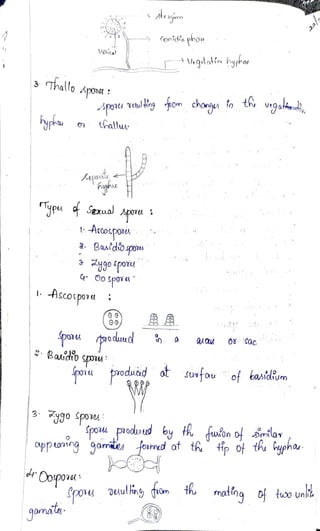 conidiophou
Vegetative hyphae
3 Thallo spores :
spores resulting from changes in the
hyphae or thallus
Septate
hyphae
Types of Sexual spores :
1. Ascospores
2. Basidiospores
3 Zygo spores
4. Oo spores
1. Ascospores :
Spores produced in a or sac
2. Basidio spores :
Spores produced at surface of basidium
3. Zygo spores :
Spores produced by the fusion of similar
appearing gametes formed at the tip of the hyphae
4. Oospores :
Spores resulting from the mating of two unlike
gamets.